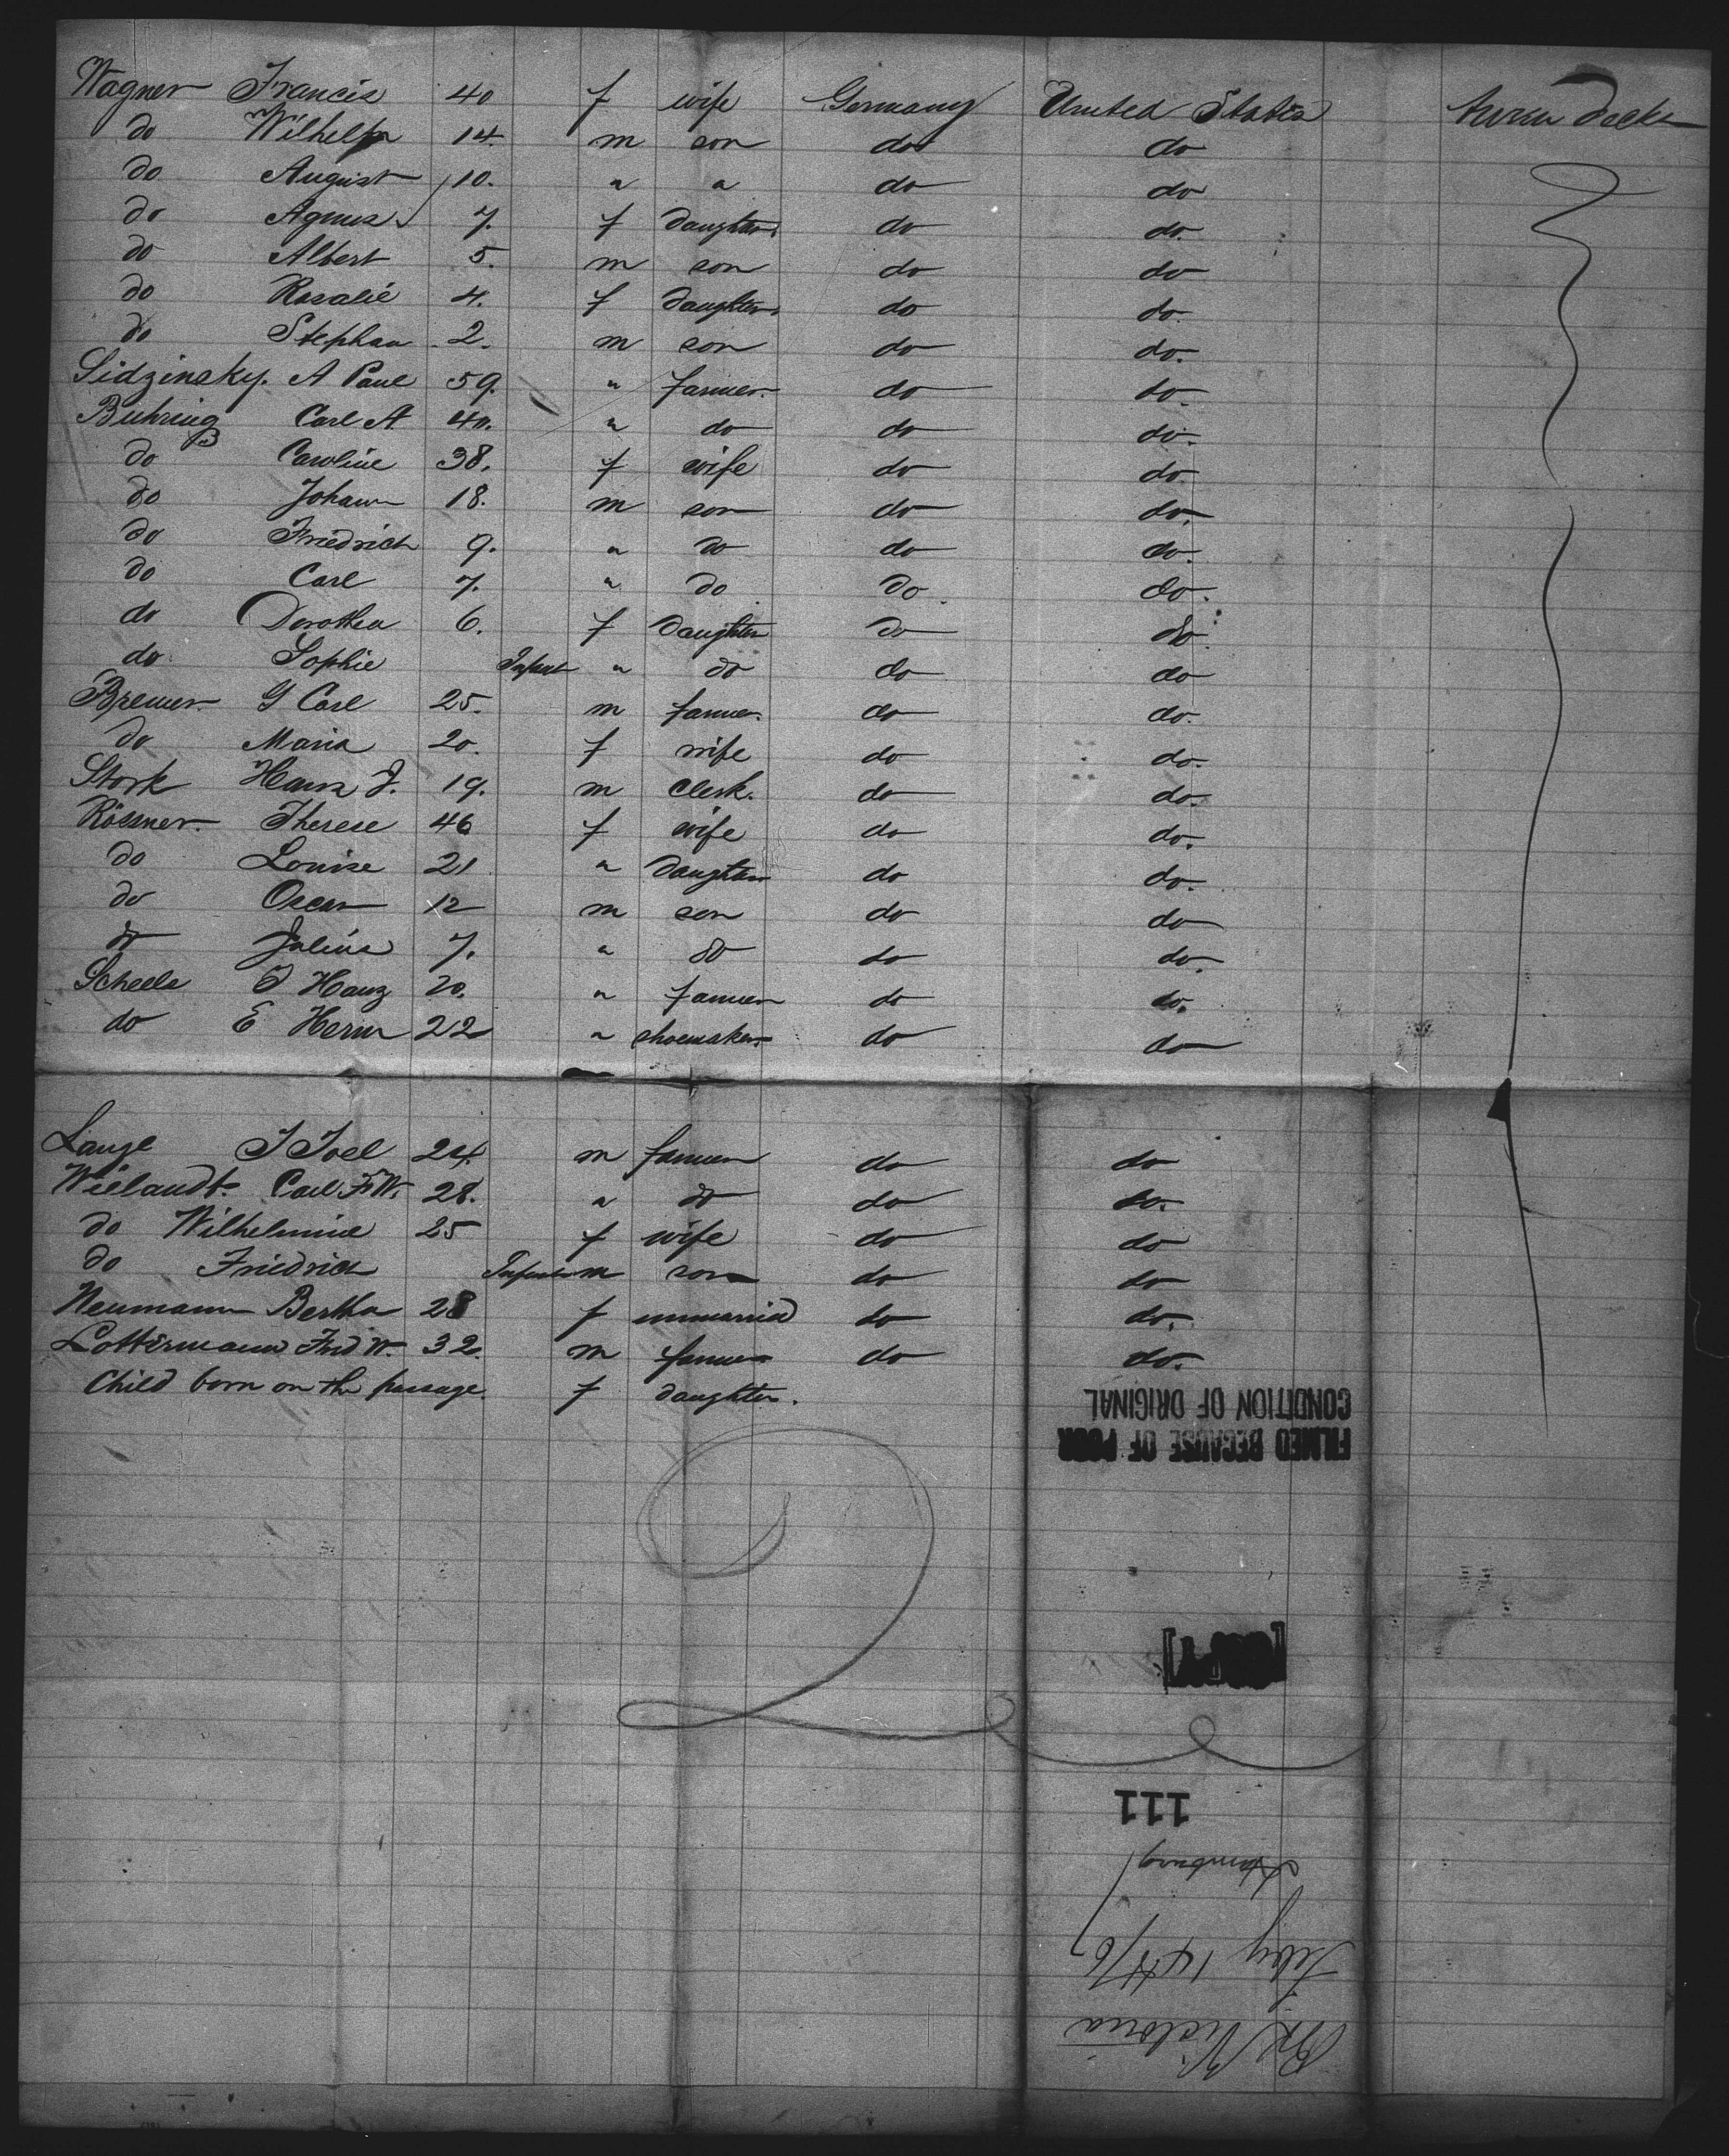 Wagner Francis 40 f wife Germany United States
do Wilhelm 14. m son do do
do August 10. " " do do
do Agnes 7. f daughter do do.
do Albert 5. m son do do
do Rosalie 4. f daughter do do.
do Stephan 2. m son do do.
Sidzinsky. A Paul 59. " farmer. do do.
Buhring Carl A. 40. " do do do.
do Caroline 38. f wife do do.
do Johann 18. m son do do.
do Friedrich 9. " do do do.
do Carl 7. " do do. do.
do Dorothea 6. f daughter do do.
do Sophie Infant " do do do
Bremer G Carl 25. m farmer. do do.
do Maria 20. f wife do do.
Stork Hans J. 19. m clerk. do do.
Rössner. Therese 46 f wife do do.
do Louise 21 " daughter do do.
do Oscar 12 m son do do
do Julius 7. " do do do.
Scheele J Hans 20. " farmer do do.
do E Herm 22 " shoemaker. do do
Lange J Joel 24. m farmer do do
Wielandt. Carl F.W. 28. " do do do.
do Wilhelmine 25 f wife do do
do Friedrich Infant m son do do
Neumann Bertha 28 f unmarried do do.
Lottermann Fred W. 32. m farmer do do.
Child born on the passage. f daughter.
FILMED BECAUSE OF POOR
CONDITION OF ORIGINAL
Victoria
Feby 14
Hamburg
111